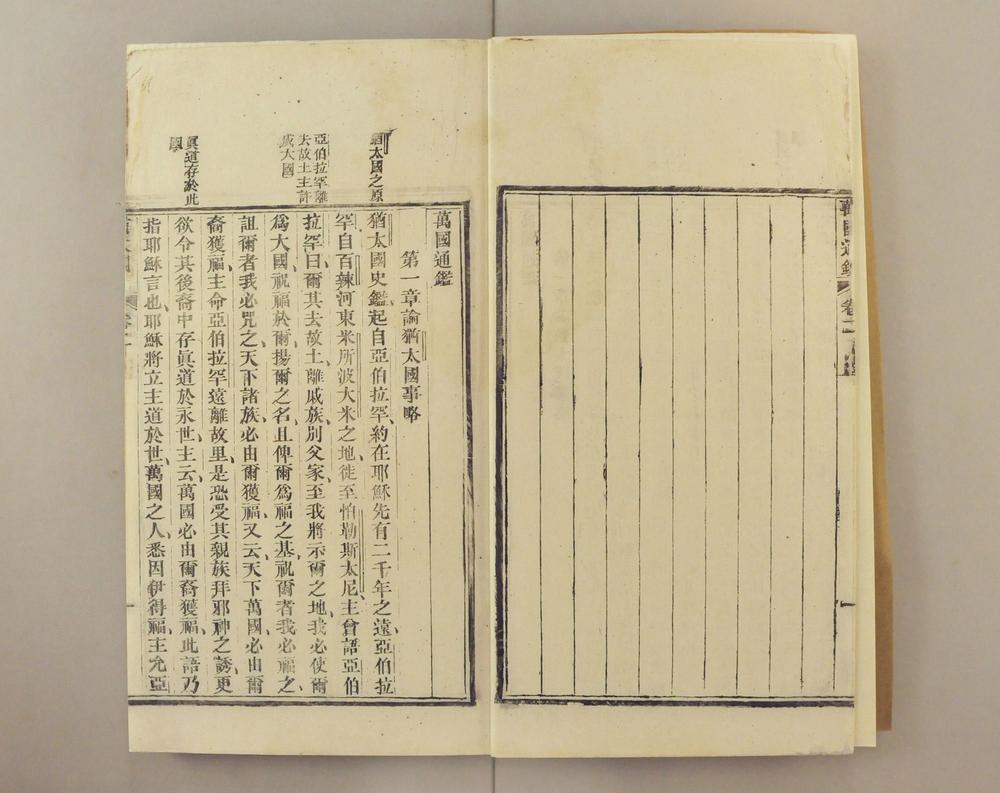 萬國通鑑
卷二
一
萬國通鑑
第一章論猶太國事略
猶太國之原
猶太國史鑑起自亞伯拉罕、約在耶穌先有二千年之遠、亞伯拉
罕自百辣河東米所波大米之地、徙至怕勒斯太尼、主曾語亞伯
亞伯拉罕離
去故土主許
成大國
拉罕曰、爾其去故土、離戚族、別父家、至我將示爾之地、我必使爾
爲大國、祝福於爾、揚爾之名、且俾爾爲福之基、祝爾者我必福之、
詛爾者我必咒之、天下諸族、必由爾獲福、又云、天下萬國、必由爾
裔獲福、主命亞伯拉罕遠離故里、是恐受其親族拜邪神之誘、更
眞道存於此
國
欲令其後裔中存眞道於永世、主云、萬國必由爾裔獲福、此語乃
指耶穌言也、耶穌將立主道於世、萬國之人、悉因伊得福、主允亞